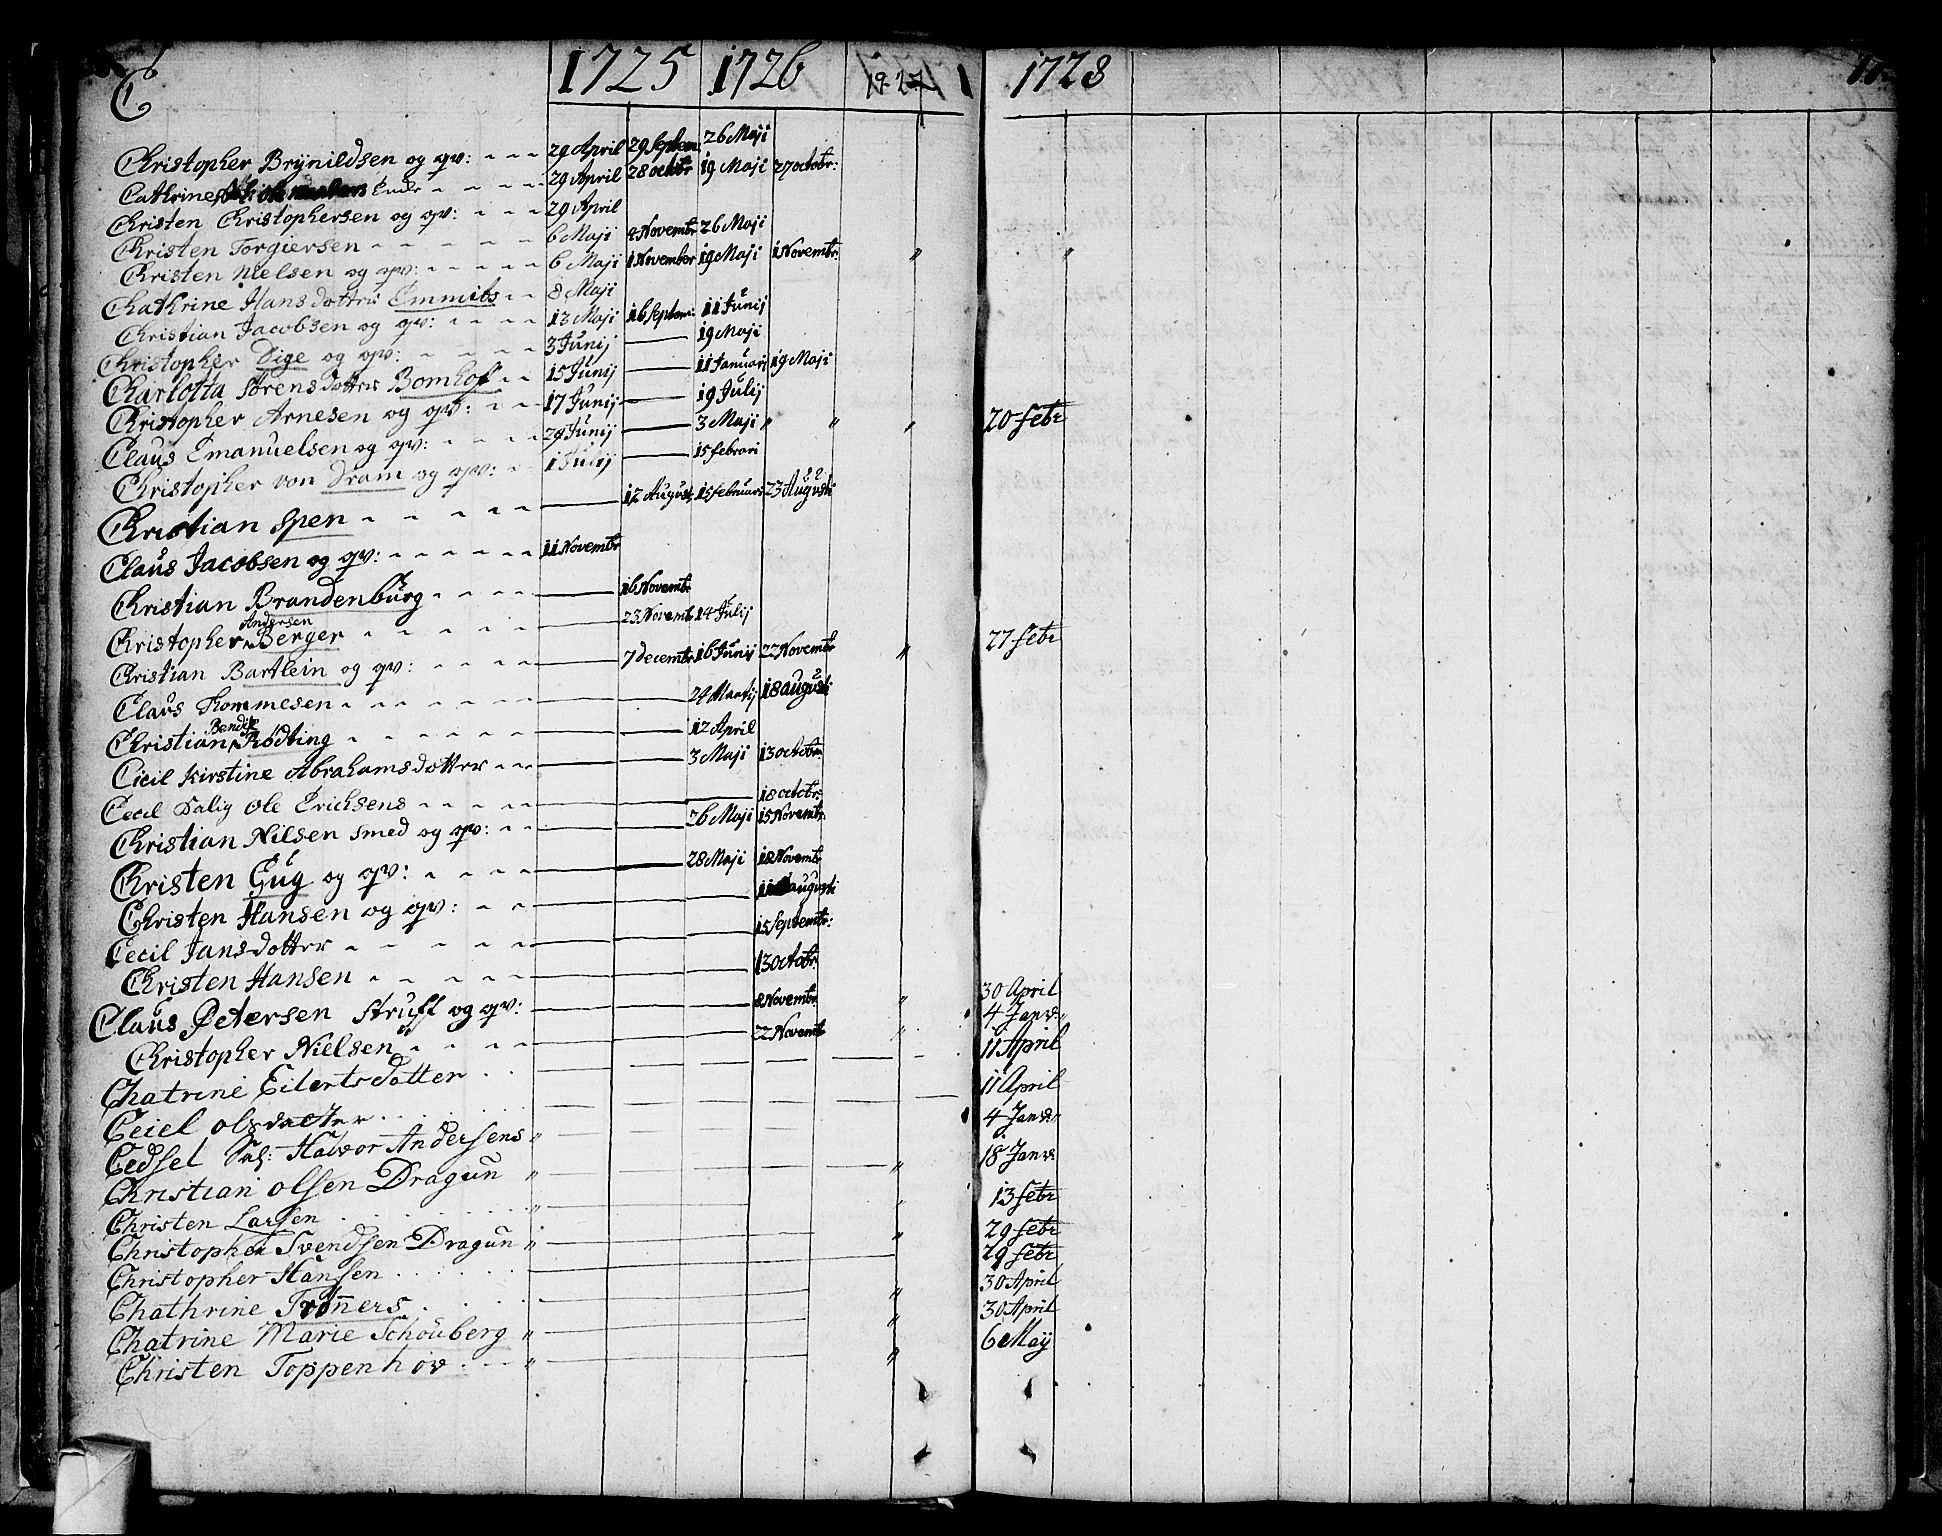 C 1725 1726 1927 1728
Christopher Brÿnildsen og qv: 29 April 29 Septem 26 Maji
Cathrine Encke 29 April 28 octbr 19 Maji 27 octobr:
Christen Christophersen og qv: 29 April
Christen Torgiersen 6 Maji 4 Novembr 26 Maji
Christen Nielsen og qv: 6 Maji 1 November 19 Maji 1 Novembr: " "
Chathrine Hans dotter Emmits 8 Maji
Christian Jacobsen og qv: 13 Maji 16 Septem: 11 Junij
Christopher Dige og qv: 3 Junij 19 Maji
Charlotta Sørens dotter Bomhof 15 Junij 11 Januari 19 Maji
Christopher Arnesen og qv: 17 Junij 19 Julij
Claus Emanuelsen og qv: 29 Junij 3 Maji " " " 20 febr
Christopher von Dram og qv: 1 Julij 15 febrari
Christian Spen 12 August 15 februari 23 Augusti
Claus Jacobsen og qv: 11 Novembr
Christian Brandenburg 16 Novembr
Andersen
Christopher Berger 23 Novemb 14 Julij
Christian Bartlein og qv: 7 decembr 16 Junij 22 Novembr " 27 febr
Claus Thommesen 24 Martij 18 augusti
Bendix
Christian Rødting 12 April
Cicil Kirstine Abrahamsdotter 3 Maji 13 octobr
Cecil Salig Ole Erichsens 18 octbr:
Christian Nilsen smed og qv: 26 Maji 15 Novembr
Christen Gug og qv: 28 Maji 18 Novembr
Christen Hansen og qv: 11 augusti
Cecil Jansdotter 15 Septembr:
Christen Hansen 13 Octobr:
Claus Petersen Struff og qv: 8 Novembr " 30 April
Christopher Nielsen 22 Novemb " 4 Janv:
Chatrine Eilertsdatter 11 April
Ceciel olsdatter 11 April
Cedsel Sal: Halvor Andersens " 4 Janv:
Christian olsen Dragun " " 18 Janv:
Christen Larsen " " 13 febr
Christopher Svendsen Dragun " " 29 febr
Christopher Hansen 29 febr
Chathrine Trøners " 30 April
Chatrine Marie Schouberg " " 30 April
Christen Toppenhov " " 6 Maÿ